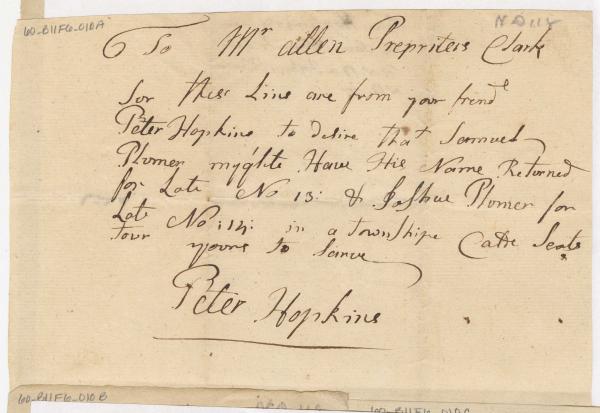 60-B11F6-010A
To Mr allen Prepriters Clark
Sor thes Lins are from your frend
Peter Hopkins to desire that Samuel
Plumer myghte Have His Name Returned
for Late No 13: & Joshue Plumer for
Late No: 14: in a townshipe
tour yours to Sarve
Peter Hopkins
60-B11F6-010B